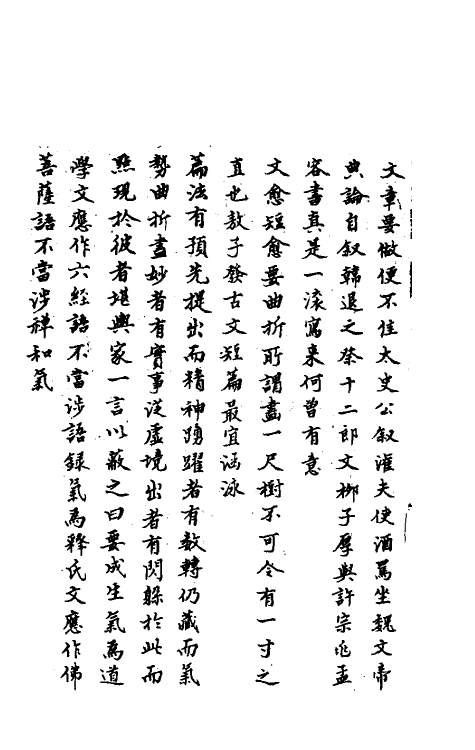 文章要做便不佳太史公叙灌夫使酒罵坐魏文帝
典論自叙韓退之祭十二郎文柳子厚與許宗兆孟
容書真是一滾寫來何曾有意
文愈短愈要曲折所謂畫一尺樹不可令有一寸之
直也敖子發古文短篇最宜涵泳
篇法有預先提出而精神踴躍者有数轉仍藏而氣
勢曲折盡妙者有實事從虛境出者有閃躲於此而
㸃現於彼者堪輿家一言以蔽之曰要成生氣爲道
學文應作六經語不當涉語録氣爲釋氏文應作佛
菩薩語不當涉禅和氣